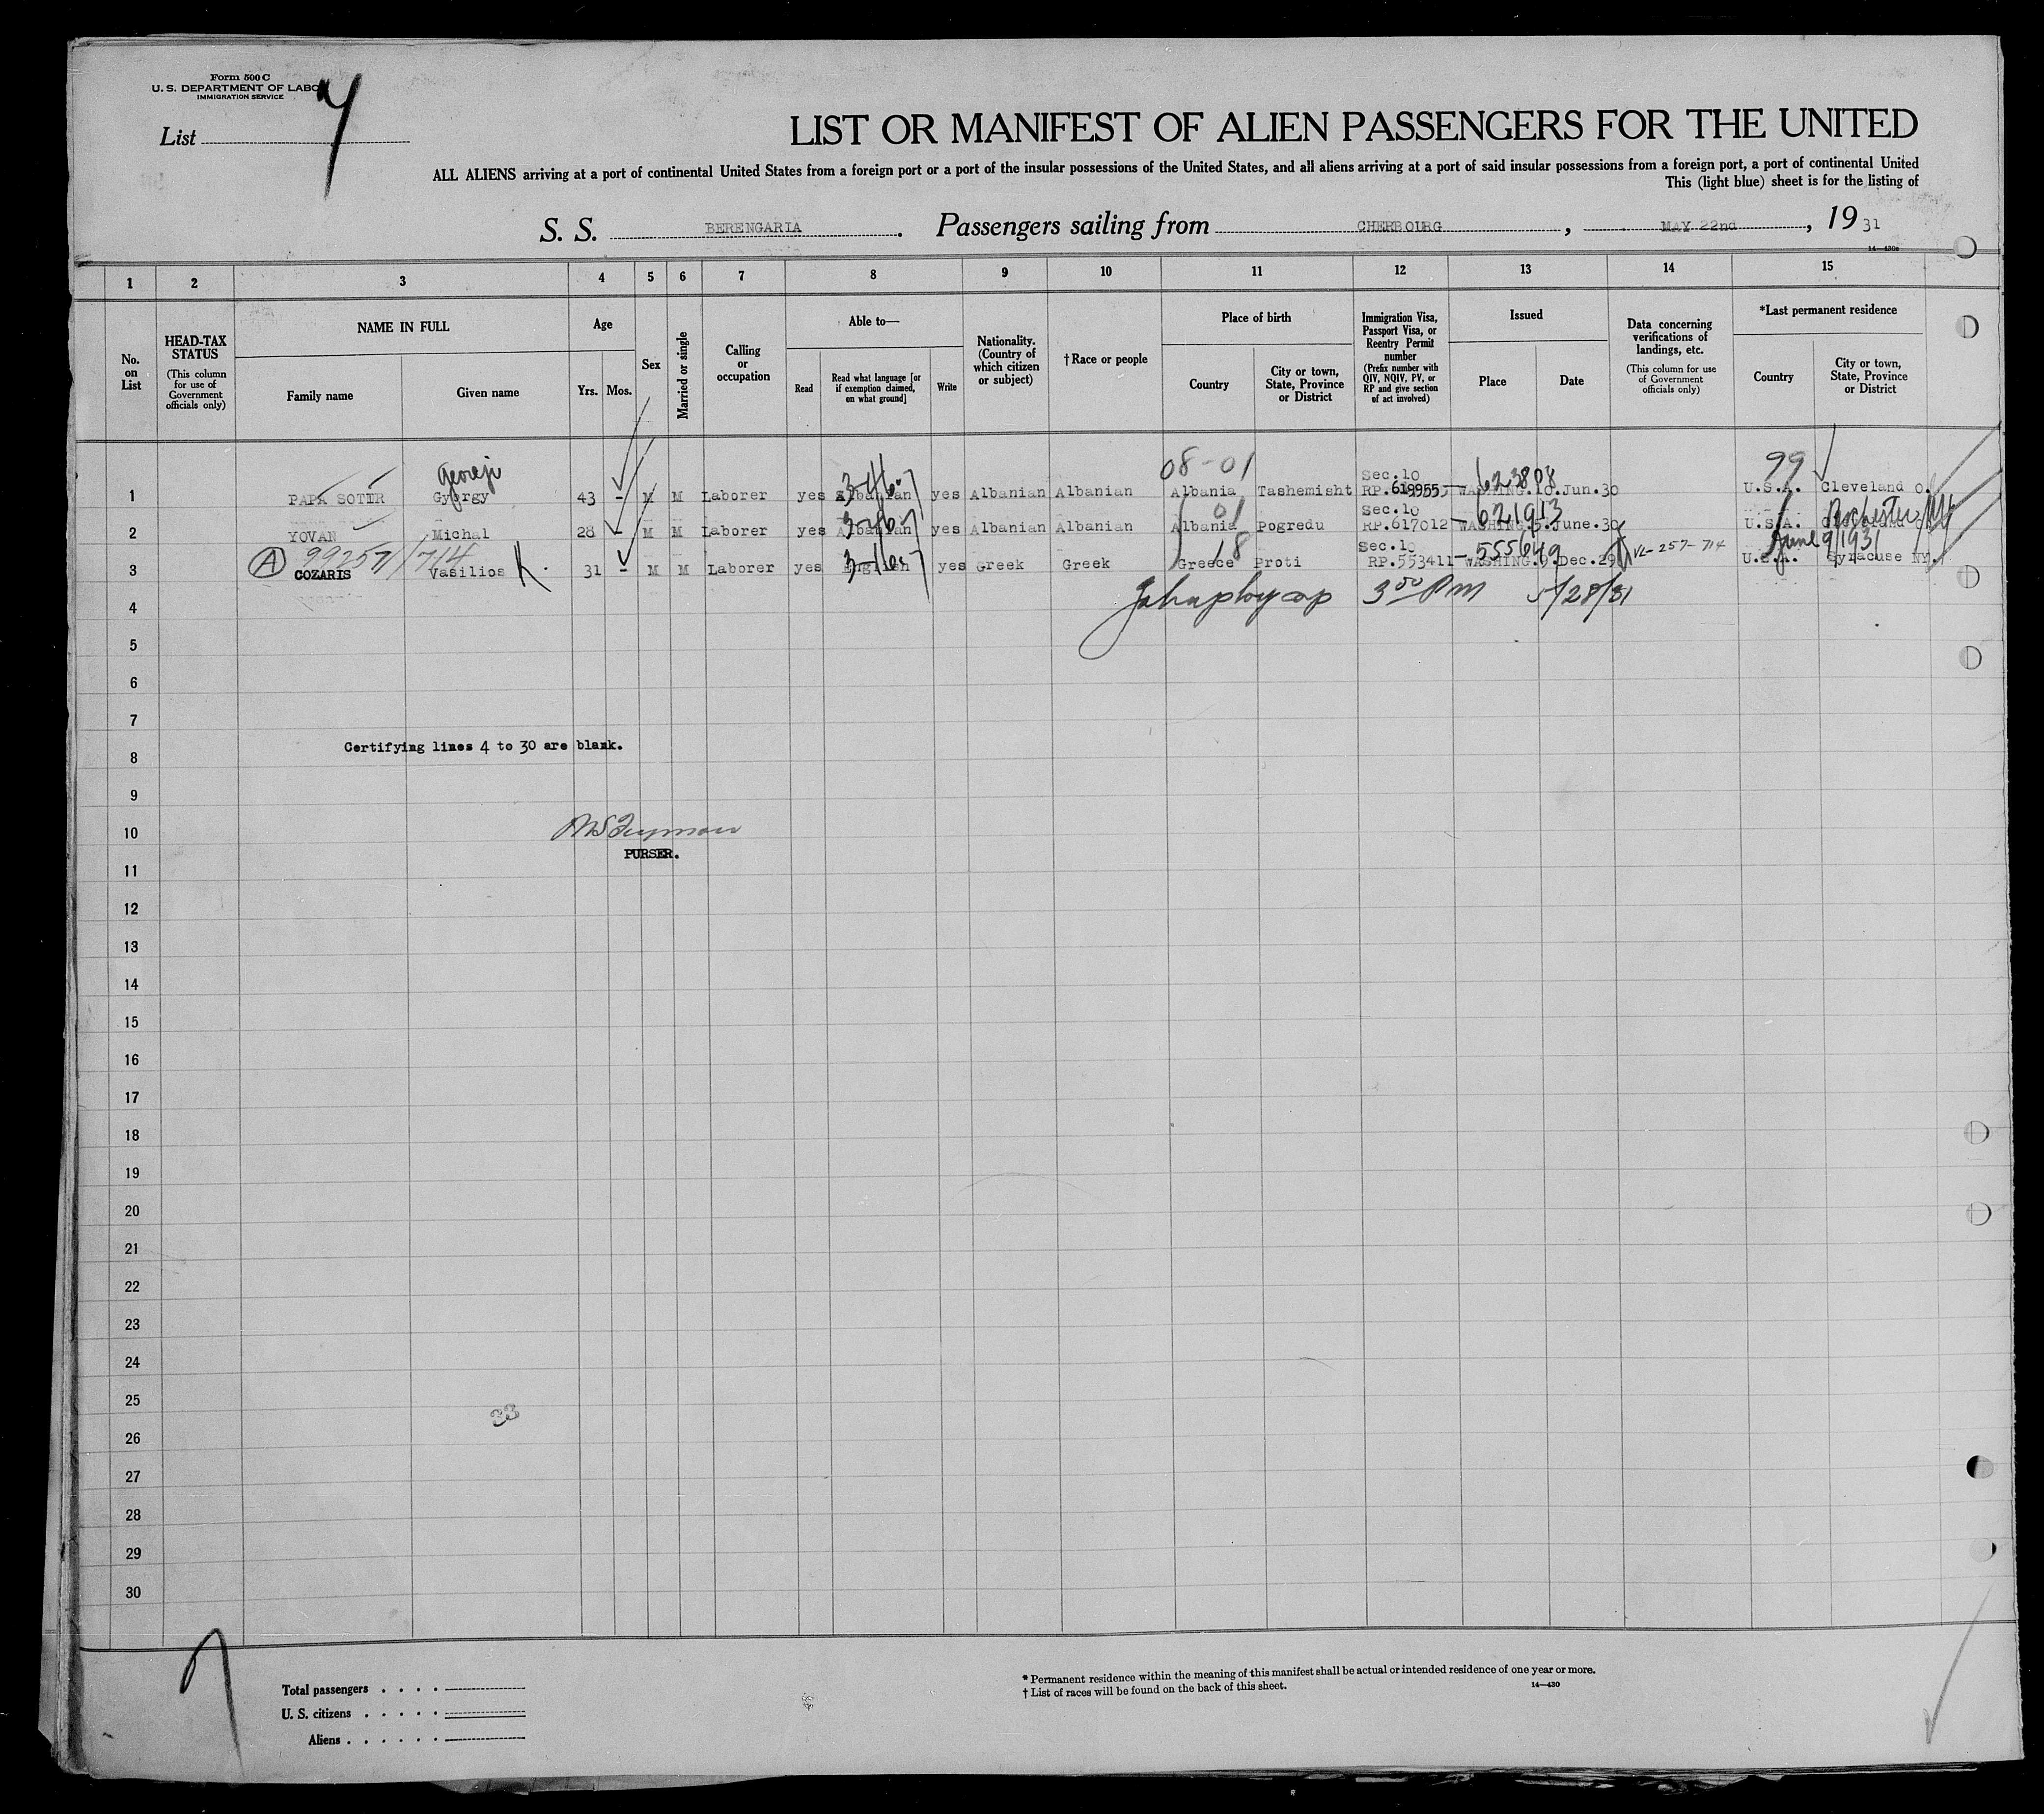 Form 500 C
U. S. DEPARTMENT OF LABO
IMMIGRATION SERVICE
List
LIST OR MANIFEST OF ALIEN PASSENGERS FOR THE UNITED
ALL ALIENS arriving at a port of continental United States from a foreign port or a port of the insular possessions of the United States, and all aliens arriving at a port of said insular possessions from a foreign port, a port of continental United
This (light blue) sheet is for the listing of
S. S. BERENGARIA. Passengers sailing from CHERBOURG, MAY 22nd, 19 31
14—430a
1 2 3 4 5 6 7 8 9 10 11 12 13 14 15
No. on List
HEAD-TAX STATUS (This column for use of Government officials only)
NAME IN FULL
Family name
Given name
Age
Yrs. Mos.
Sex
Married or single
Calling or occupation
Able to—
Read
Read what language [or if exemption claimed, on what ground]
Write
Nationality. (Country of which citizen or subject)
†Race or people
Place of birth
Country
City or town, State, Province or District
Immigration Visa, Passport Visa, or Reentry Permit number (Prefix number with QIV, NQIV, PV, or RP and give section of act involved)
Issued
Place
Date
Data concerning verifications of landings, etc. (This column for use of Government officials only)
*Last permanent residence
Country
City or town, State, Province or District
08-01 Sec.10 623808 99
1 PAPA SOTIR Gyorgy 43 - M M Laborer yes Albanian yes Albanian Albanian Albania Tashemisht RP.619955 WASHING. 10.Jun.30 U.S.A. Cleveland O.
01 Sec.10 621913 Rochester NY
2 YOVAN Michal 28 - M M Laborer yes Albanian yes Albanian Albanian Albania Pogredu RP.617012 WASHING. 5.June.30 U.S.A.
A 99257/714 18 Sec.10 555649 VL-257-714 June 9/1931
3 COZARIS Vasilios K. 31 - M M Laborer yes English yes Greek Greek Greece Proti RP.553411 WASHING. 9.Dec.29 U.S.A. Syracuse NY.
4 3 00 PM 5/28/31
5
6
7
Certifying lines 4 to 30 are blank.
8
9
10
PURSER.
11
12
13
14
15
16
17
18
19
20
21
22
23
24
25
33
26
27
28
29
30
Total passengers . . . .
U. S. citizens . . . . .
Aliens . . . . . .
* Permanent residence within the meaning of this manifest shall be actual or intended residence of one year or more.
† List of races will be found on the back of this sheet.
14—430